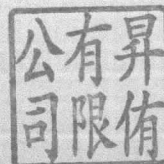 昇侑
有限
公司